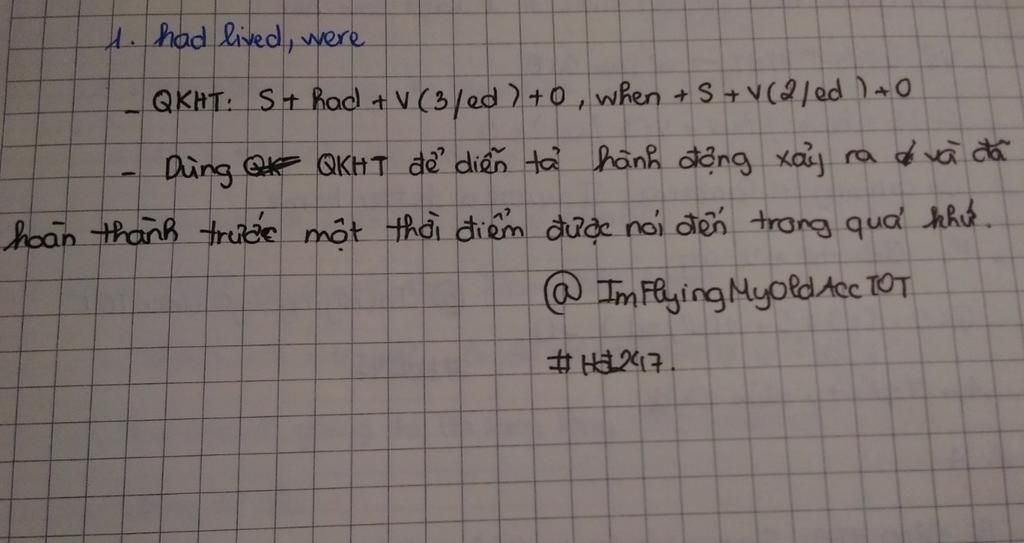 1. had lived, were
- QKHT: S + had + V(3/ed) + O, when + S + V(2/ed) + O
- Dùng QKHT để diễn tả hành động xảy ra và đã
hoàn thành trước một thời điểm được nói đến trong quá khứ.
@ ImFlyingMyOldAccTOT